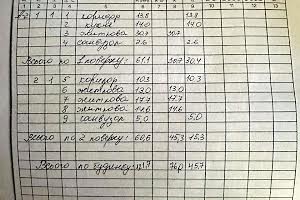 5 6 7 8 9
1 1 коридор 13,8 13.8
2 кухня 14.0 14.0
3 житлова 30.7 30.7
4 санвузол 2.6 2.6
Всього по 1 поверху: 61,1 30.7 30,4
2 1 5 коридор 10.3 10.3
6 житлова 13.0 13.0
7 житлова 17.7 17.7
8 житлова 14.6 14.6
9 санвузол 5,0 5.0
Всього по 2 поверху: 60,6 45,3 15.3
Всього по будинку: 121.7 76,0 45.7